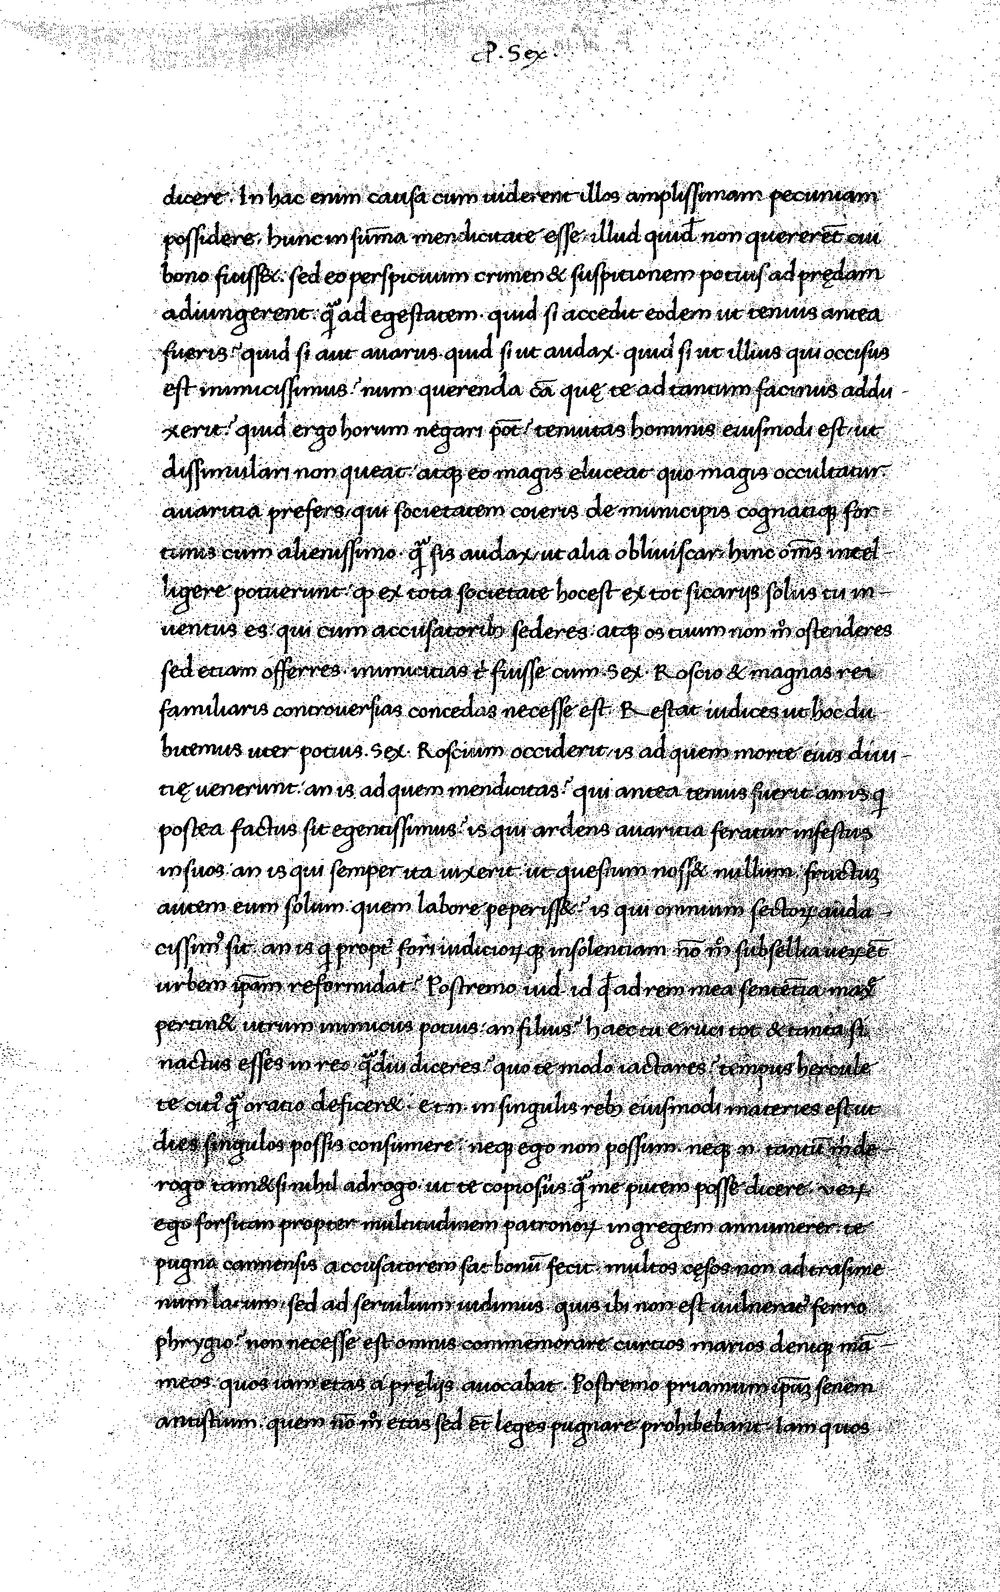 P. Sex.
dicere. In hac enim causa cum uiderent illos amplissimam pecuniam
possidere. hunc in sum̄a mendicitate esse. illud quid̄ non quererēt cui
bono fuiss&. sed eo perspicuum crimen & suspitionem potius ad prędam
adiungerent. q̄ ad egestatem. quid si accedit eodem ut tenuis antea
fueris? quid si aut auarus. quid si ut audax. quid si ut illius qui occisus
est inimicissimus? num querenda cā quę te ad tantum facinus addu-
xerit? quid ergo horum negari pōt? tenuitas hominis eiusmodi est/ ut
dissimulari non queat. atq; eo magis eluceat quo magis occultatur.
auaritia prefers/ qui societatem coieris de municipis cognatiq; for-
tunis cum alienissimo. q̄ sis audax/ ut alia obliuiscar. hinc om̄s intel-
ligere potuerunt. ꝙ ex tota societate hoc est ex tot sicarijs solus tu in-
uentus es. qui cum accusatorib; sederes. atq; os tuum non m̊ ostenderes
sed etiam offerres. inimicitias t̊ fuisse cum. Sex. Roscio & magnas rei
familiaris controuersias concedas necesse est. Restat iudices ut hoc du-
bitemus uter potius. Sex. Roscium occiderit/ is ad quem morte eius diui-
tię uenerunt. an is ad quem mendicitas? qui antea tenuis fuerit. an is q̇
postea factus sit egentissimus? is qui ardens auaritia feratur infestus
in suos. an is qui semper ita uixerit. ut questum noss& nullum. fructuꝫ
autem eum solum. quem labore peperiss&? is qui omnium sectoꝝ auda-
cissim᷒ sit. an is q̇ propt᷒ fori iudicioꝝq; insolentiam nō m̊ subsellia ueꝝ ēt
urbem ip̄am reformidat? Postremo iud. id q̄ ad rem mea sentētia max̄
pertin& utrum inimicus potius. an filius? haec tu Eruci tot & tanta si
nactus esses in reo. q̄diu diceres? quo te modo iactares? tempus hercule
te citi᷒ q̄ oratio deficer&. Et.n. in singulis reb; eiusmodi materies est ut
dies singulos possis consumere. neq; ego non possum. neq; .n. tantū m̊ de-
rogo tam&si nihil adrogo. ut te copiosius q̄ me putem posse dicere. ueꝝ
ego forsitan propter multitudinem patronoꝝ in gregem annumerer. te
pugna cannensis accusatorem sat bonū fecit. multos cęsos non ad trasime
num lacum. sed ad seruilium uidimus. quis ibi non est uulnerat᷒ ferro
phrygio? non necesse est omnis commemorare curtios marios deniq; mā-
meos. quos iam etas a prelijs auocabat. Postremo priamum ip̄uꝫ senem
antistium. quem nō m̊ etas sed ēt leges pugnare prohibebant. Iam quos